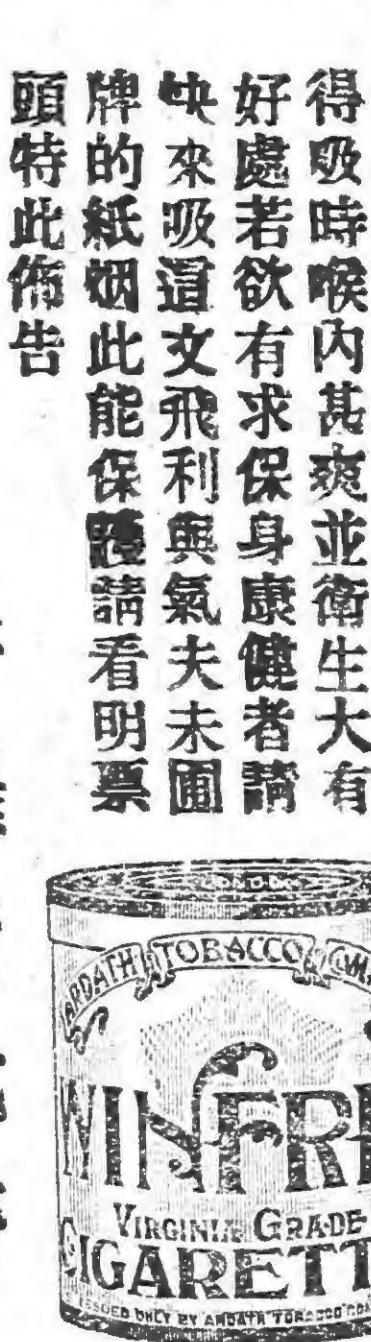 得吸時喉內甚爽並衛生大有
好處若欲有求保身康健者請
快來吸這文飛利與氣夫未圃
牌的紙烟此能保體請看明票
頭特此佈告
LONDON
ARDATH TOBACCO COM
WINFRE
VIRGINIA GRADE
CIGARETT
ISSUED ONLY BY ARDATH TOBACCO COM